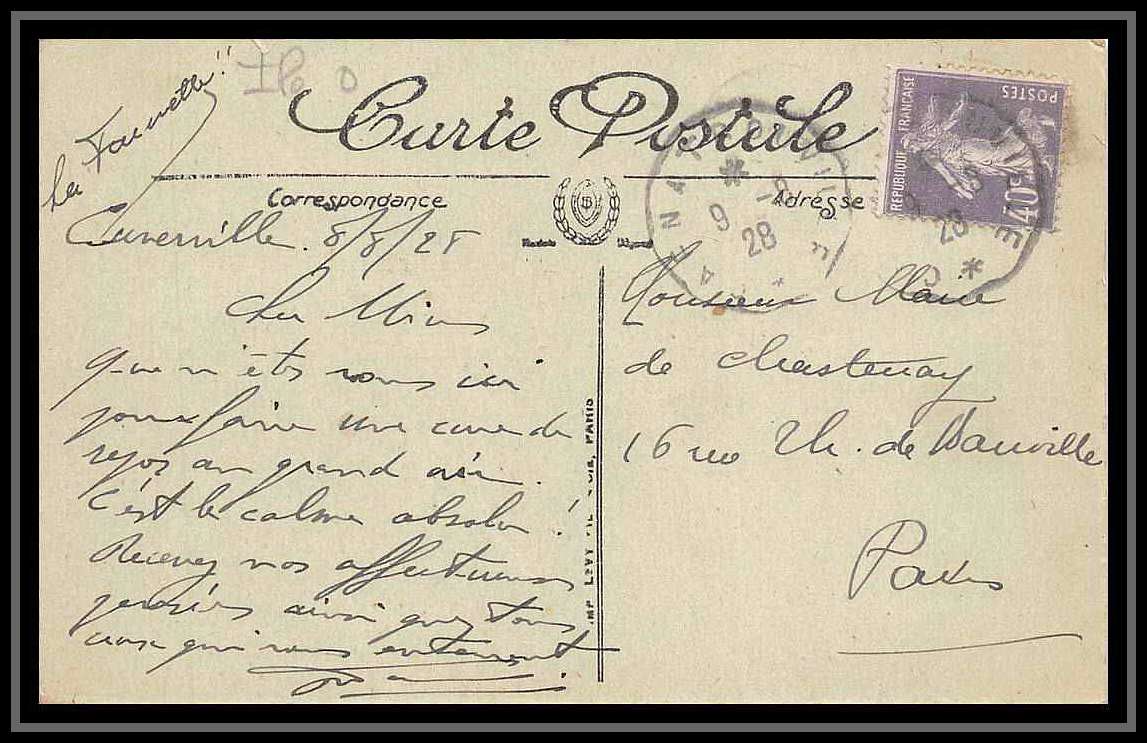 La Fauvette!!
Carte Postale
Correspondance
Adresse
POSTES
REPUBLIQUE FRANÇAISE
40c
9
28
Cuverville. 8/8/28
Cher
que n'êtes vous ici
pour faire une cure de
repos au grand air.
c'est le calme absolu!
Recevez nos affectueuses
pensées ainsi que tous
ceux qui vous entourent
IMP. LEVY PARIS
Monsieur
de Chastenay
16 rue Th. de Banville
Paris